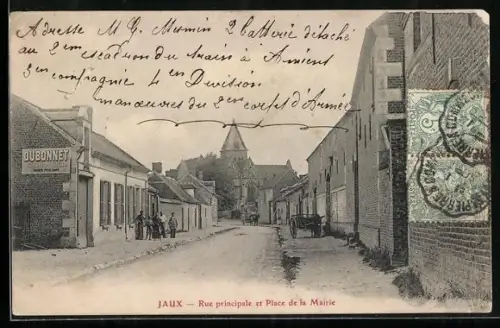 Adresse M G. Mermin 2 batterie détaché
au 2em escadron du train à Amiens
3em compagnie 4em Division
manœuvres du 2em corps d'Armée
DUBONNET
JAUX — Rue principale et Place de la Mairie